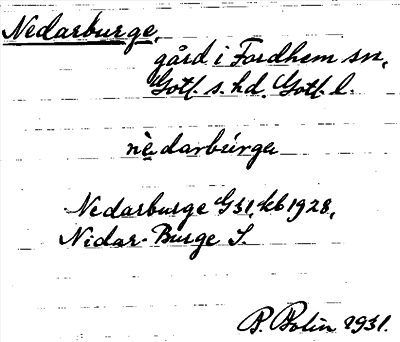 Nedarburge,
gård i Fardhem sn,
Gotl. s. hd. Gotl. l.
nèdarbúrga
Nedarburge G31, kb 1928,
Nidar-Burge S.
B. Bolin 1931.